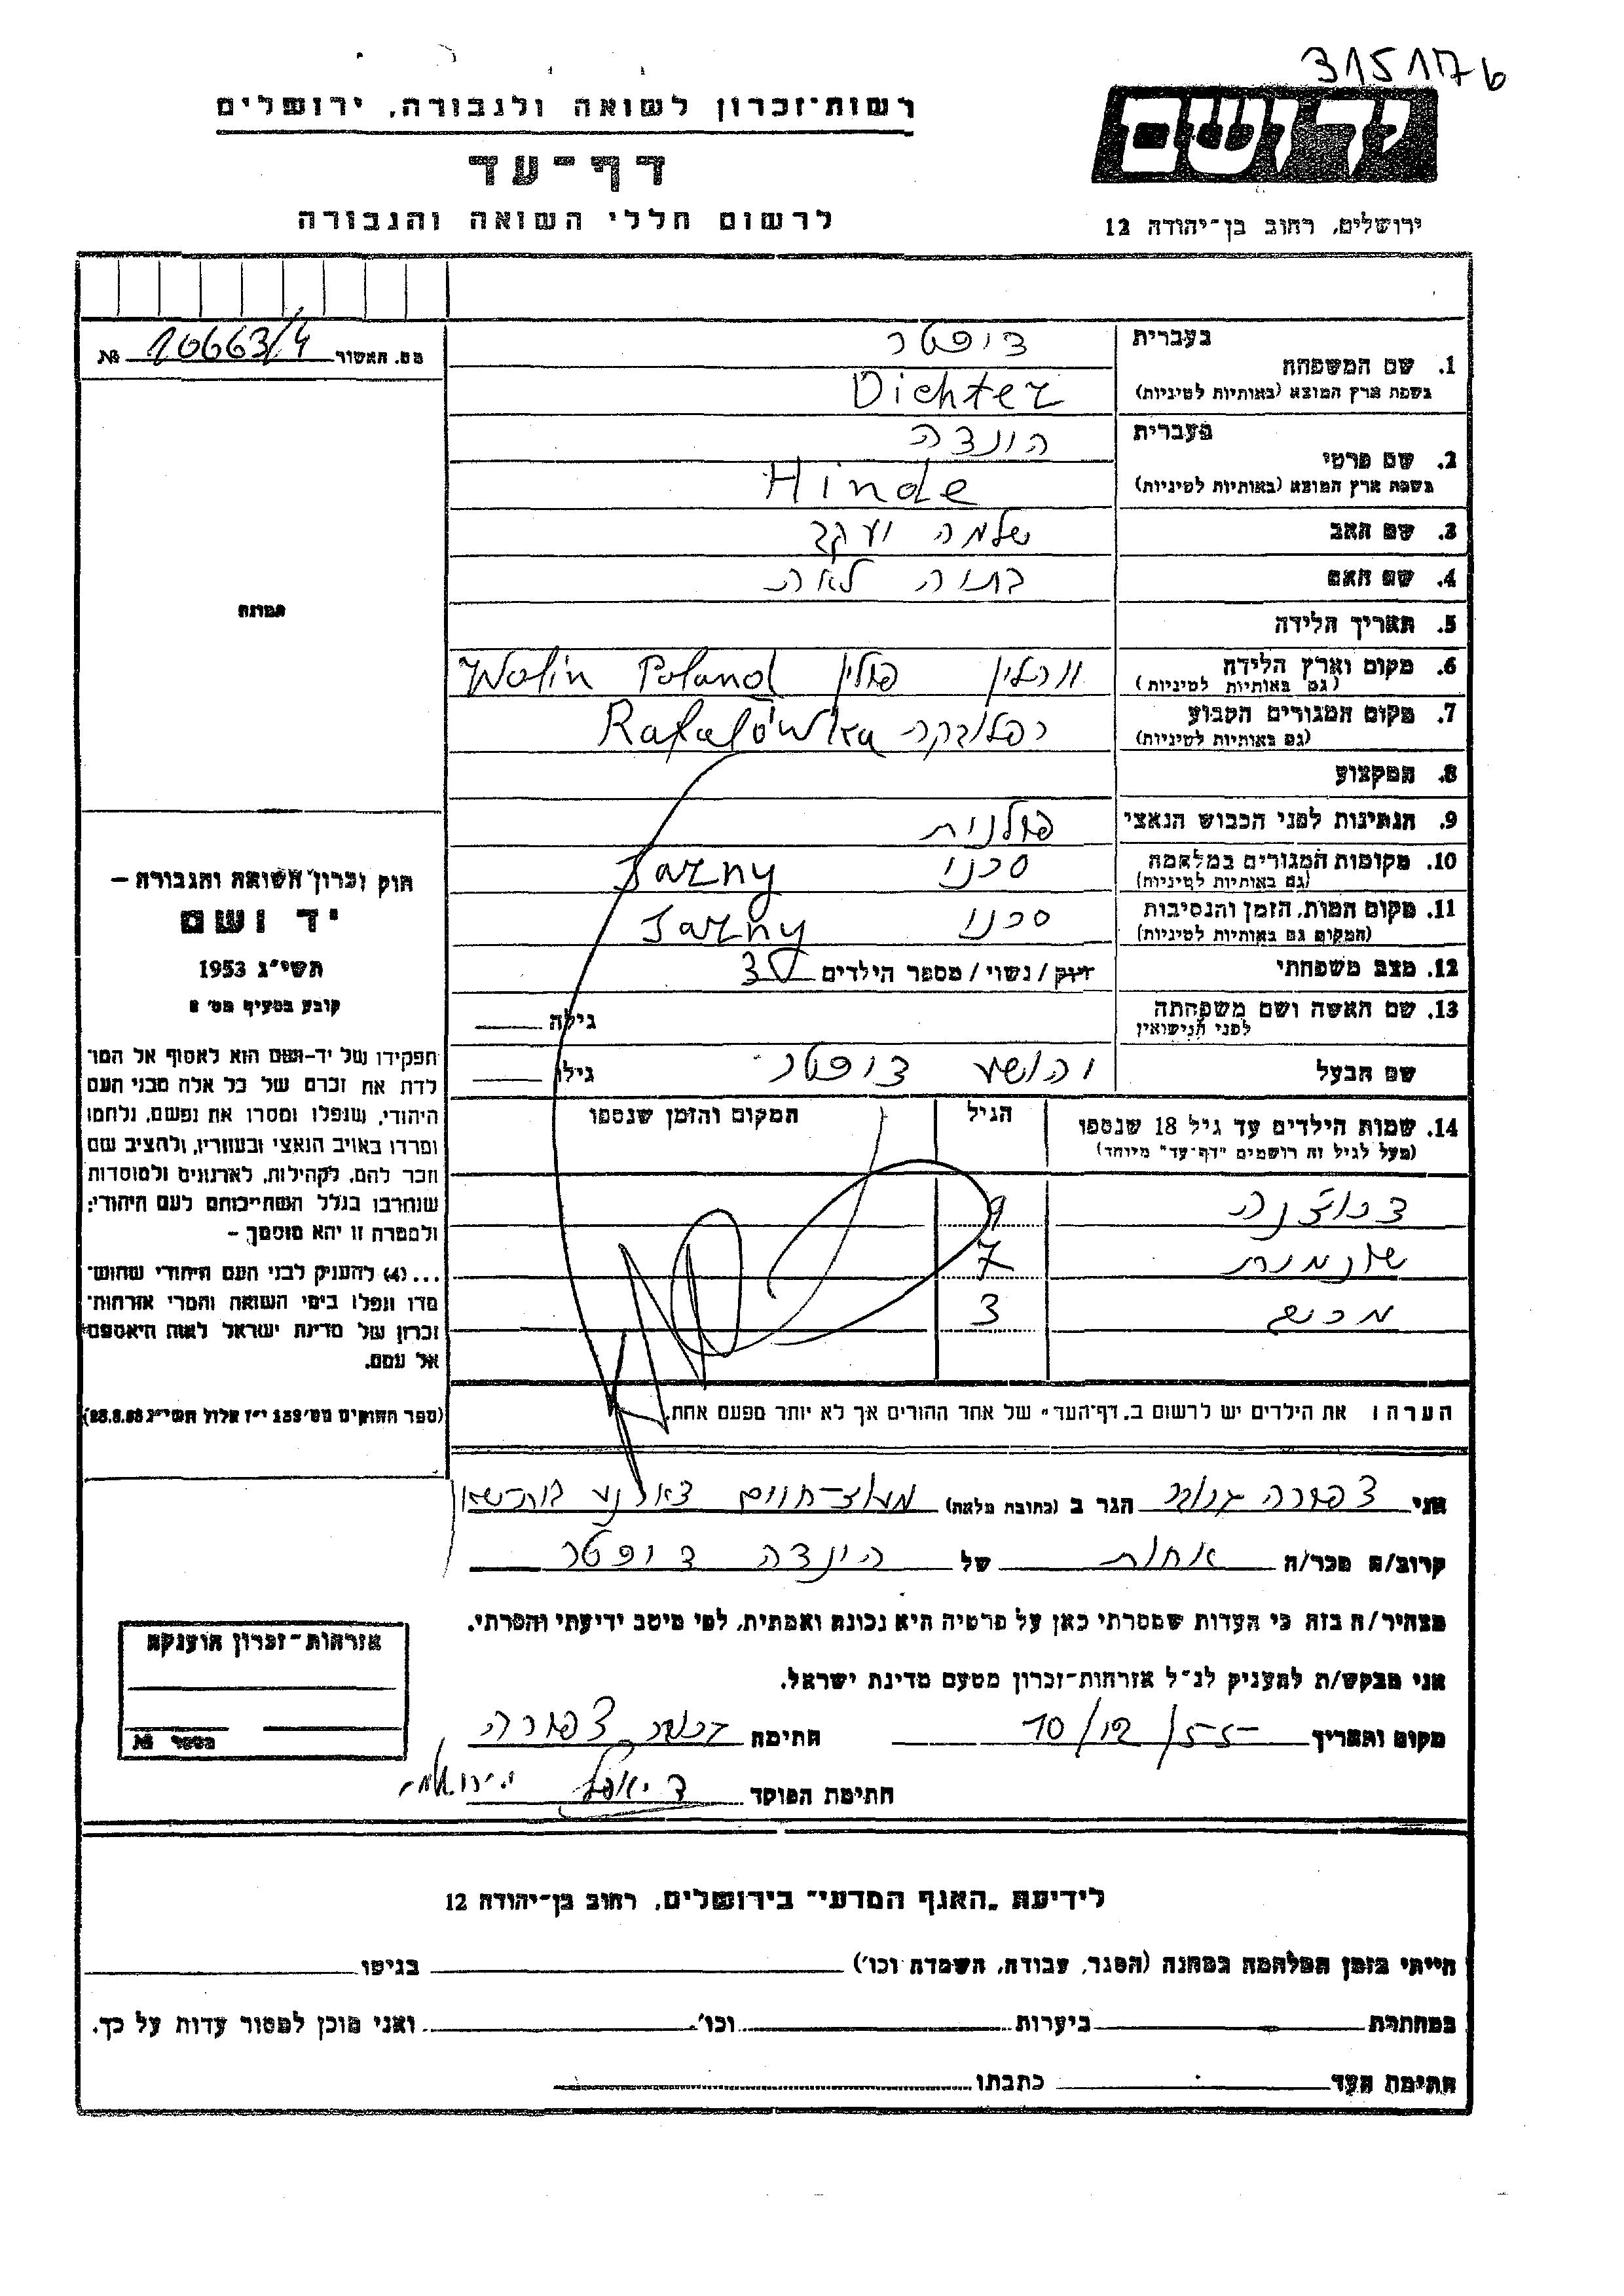 315117 b
ידושם
רשות-זכרון לשואה ולגבורה, ירושלים
דף-עד
לרשום חללי השואה והגבורה
ירושלים, רחוב בן-יהודה 12
מס. האשור № 20663/4
תמונה
1. שם המשפחה
בעברית
דיכטר
בשפת ארץ המוצא (באותיות לטיניות) Dichter
2. שם פרטי
בעברית
הינדה
בשפת ארץ המוצא (באותיות לטיניות) Hinde
3. שם האב שלמה יעקב
4. שם האם בתיה לאה
5. תאריך הלידה
6. מקום וארץ הלידה ווהלין פולין Wolin Poland
(גם באותיות לטיניות)
7. מקום המגורים הקבוע רפלובקה Rafałówka
(גם באותיות לטיניות)
8. המקצוע
9. הנתינות לפני הכבוש הנאצי פולנית
10. מקומות המגורים במלחמה סרני Sarny
(גם באותיות לטיניות)
11. מקום המות, הזמן והנסיבות סרני Sarny
(המקום גם באותיות לטיניות)
12. מצב משפחתי רווק / נשוי / מספר הילדים 3
13. שם האשה ושם משפחתה גילה
לפני הנישואין
שם הבעל יהושע דיכטר גילו
14. שמות הילדים עד גיל 18 שנספו הגיל המקום והזמן שנספו
(מעל לגיל זה רושמים "דף-עד" מיוחד)
9
7
3
הערה: את הילדים יש לרשום ב„דף-העד" של אחד ההורים אך לא יותר מפעם אחת.
חוק זכרון השואה והגבורה –
יד ושם
תשי"ג 1953
קובע בסעיף מס' 2
תפקידו של יד-ושם הוא לאסוף אל המו
לדת את זכרם של כל אלה מבני העם
היהודי, שנפלו ומסרו את נפשם, נלחמו
ומרדו באויב הנאצי ובעוזריו, ולהציב שם
וזכר להם, לקהילות, לארגונים ולמוסדות
שנחרבו בגלל השתייכותם לעם היהודי;
ולמטרה זו יהא מוסמך –
... (4) להעניק לבני העם היהודי שהוש-
מדו ונפלו בימי השואה והמרי אזרחות-
זכרון של מדינת ישראל לאות היאספם
אל עמם.
(ספר החוקים מס' 132 י"ז אלול תשי"ג 28.8.53)
אני צפורה הגר ב (כתובת מלאה) מעוז-חיים בית-שאן
קרוב/ה מכר/ה אחות של הינדה דיכטר
מצהיר/ה בזה כי העדות שמסרתי כאן על פרטיה היא נכונה ואמתית, לפי מיטב ידיעתי והכרתי.
אני מבקש/ת להעניק לנ"ל אזרחות-זכרון מטעם מדינת ישראל.
מקום ותאריך 10/12/55 חתימה צפורה
חתימת הפוקד
אזרחות-זכרון הוענקה
מספר №
לידיעת „האגף המדעי" בירושלים, רחוב בן-יהודה 12
הייתי בזמן המלחמה במחנה (הסגר, עבודה, השמדה וכו') בגיטו
במחתרת ביערות וכו' ואני מוכן למסור עדות על כך.
חתימת העד כתבתו